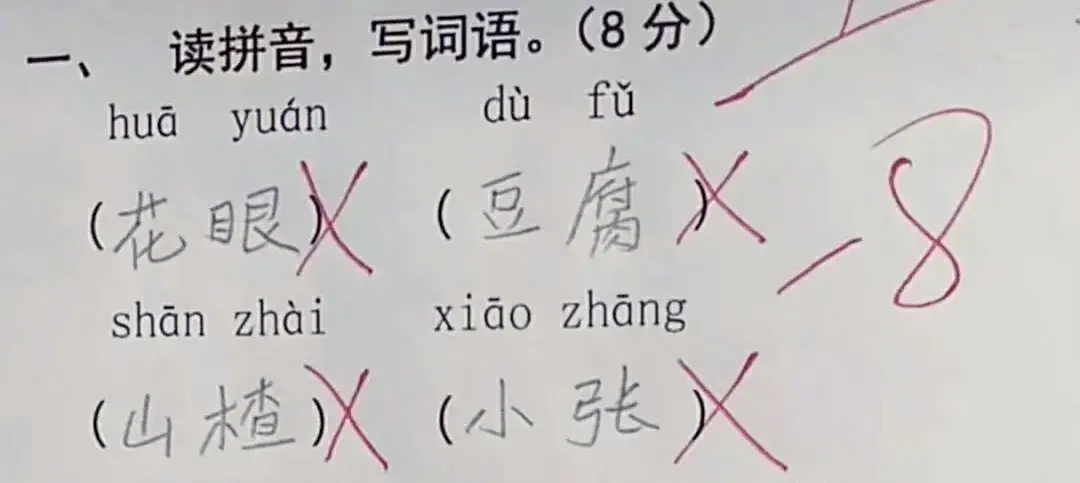 一、 读拼音，写词语。（8 分）
huā yuán dù fǔ
(花眼) (豆腐)
-8
shān zhài xiāo zhāng
(山楂) (小张)